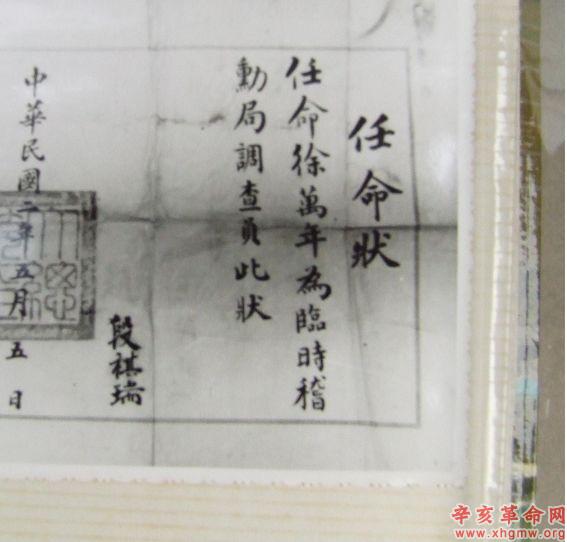 任命狀
任命徐萬年為臨時稽
勳局調查員此狀
段祺瑞
中華民國二年五月五日
辛亥革命网
www.xhgmw.org